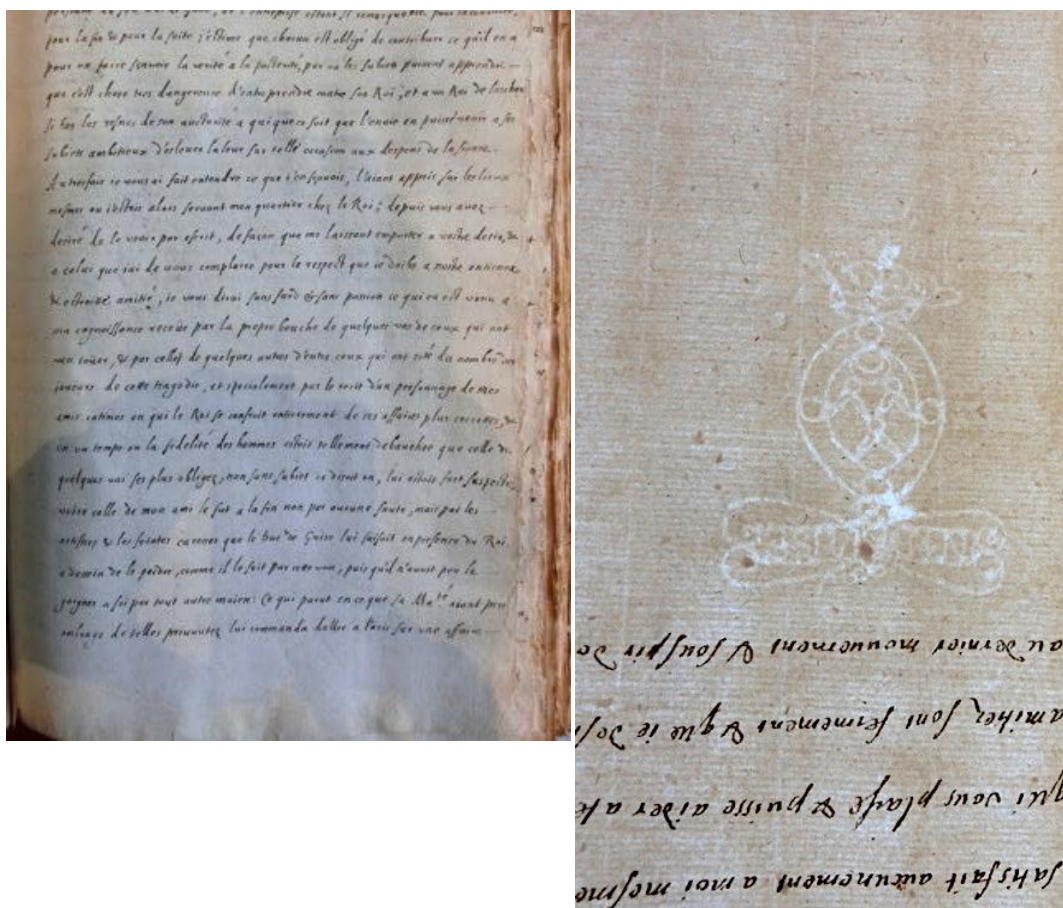 pour la fin & pour la suite j'estime que chacun est obligé de contribuer ce qu'il en a
pour en faire sçauoir la verité a la posterité, par où les subiets puissent apprendre
que c'est chose tres dangereuse d'entreprendre contre son Roi, et a un Roi de lascher
si bas les resnes de son auctorité a qui que ce soit que l'enuie en puisse venir a ses
subiets ambitieux d'esleuer la leur sur telle occasion aux despens de la sienne.
Autresfois ie vous ai fait entendre ce que i'en sçauois, l'aiant appris sur les lieux
mesmes ou i'estois alors seruant mon quartier chez le Roi; depuis vous auez
desiré de le veoir par escrit, de façon que me laissant emporter a vostre desir, &
a celui que i'ai de vous complaire pour le respect que ie doibs a nostre ancienne
& estroite amitié, ie vous dirai sans fard & sans passion ce qui en est venu a
ma cognoissance receüe par la propre bouche de quelques uns de ceux qui ont
& par celles de quelques autres d'entre ceux qui ont esté du nombre des
ioueurs de cette tragedie, et specialement par le recit d'un personnage de mes
amis intimes en qui le Roi se confioit entierement de ses affaires plus secrettes, &
en un temps ou la fidelité des hommes estoit tellement debauchee que celle de
quelques uns ses plus obligez, non sans subiet ce disoit on, lui estoit fort suspecte,
voire celle de mon ami le fut a la fin non par aucune faute, mais par les
artifices & les feintes caresses que le Duc de Guise lui faisoit en presence du Roi
a dessein de le perdre, comme il le fait par mesme, puis qu'il n'auoit peu le
gaigner a soi par tout autre moien: Ce qui parut en ce que sa Ma.te aiant pris
ombrage de telles priuautez lui commanda d'aller a Paris sur une affaire
satisfait aucunement a moi mesme
qui vous plaise & puisse aider a
amitiez sont fermement & que ie
au dernier mouuement & souspir de